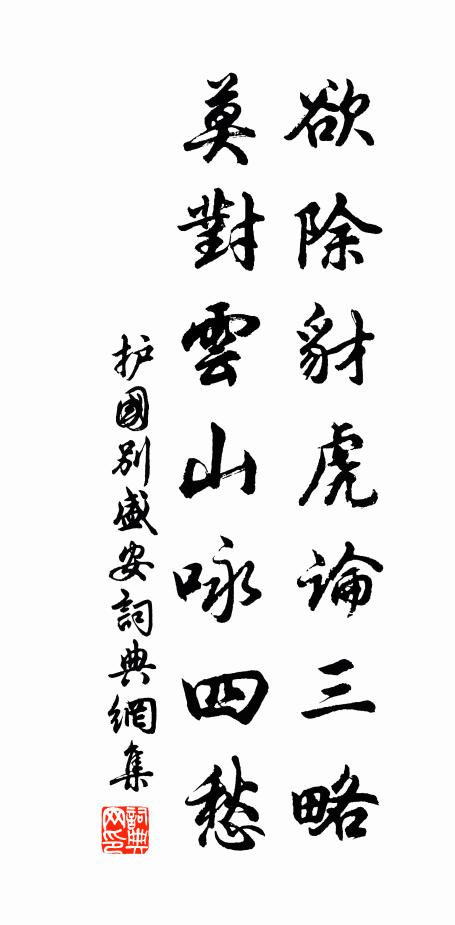 欲除豺虎論三略
莫對雲山詠四愁
护國别盛安詞典網集
詞典网印